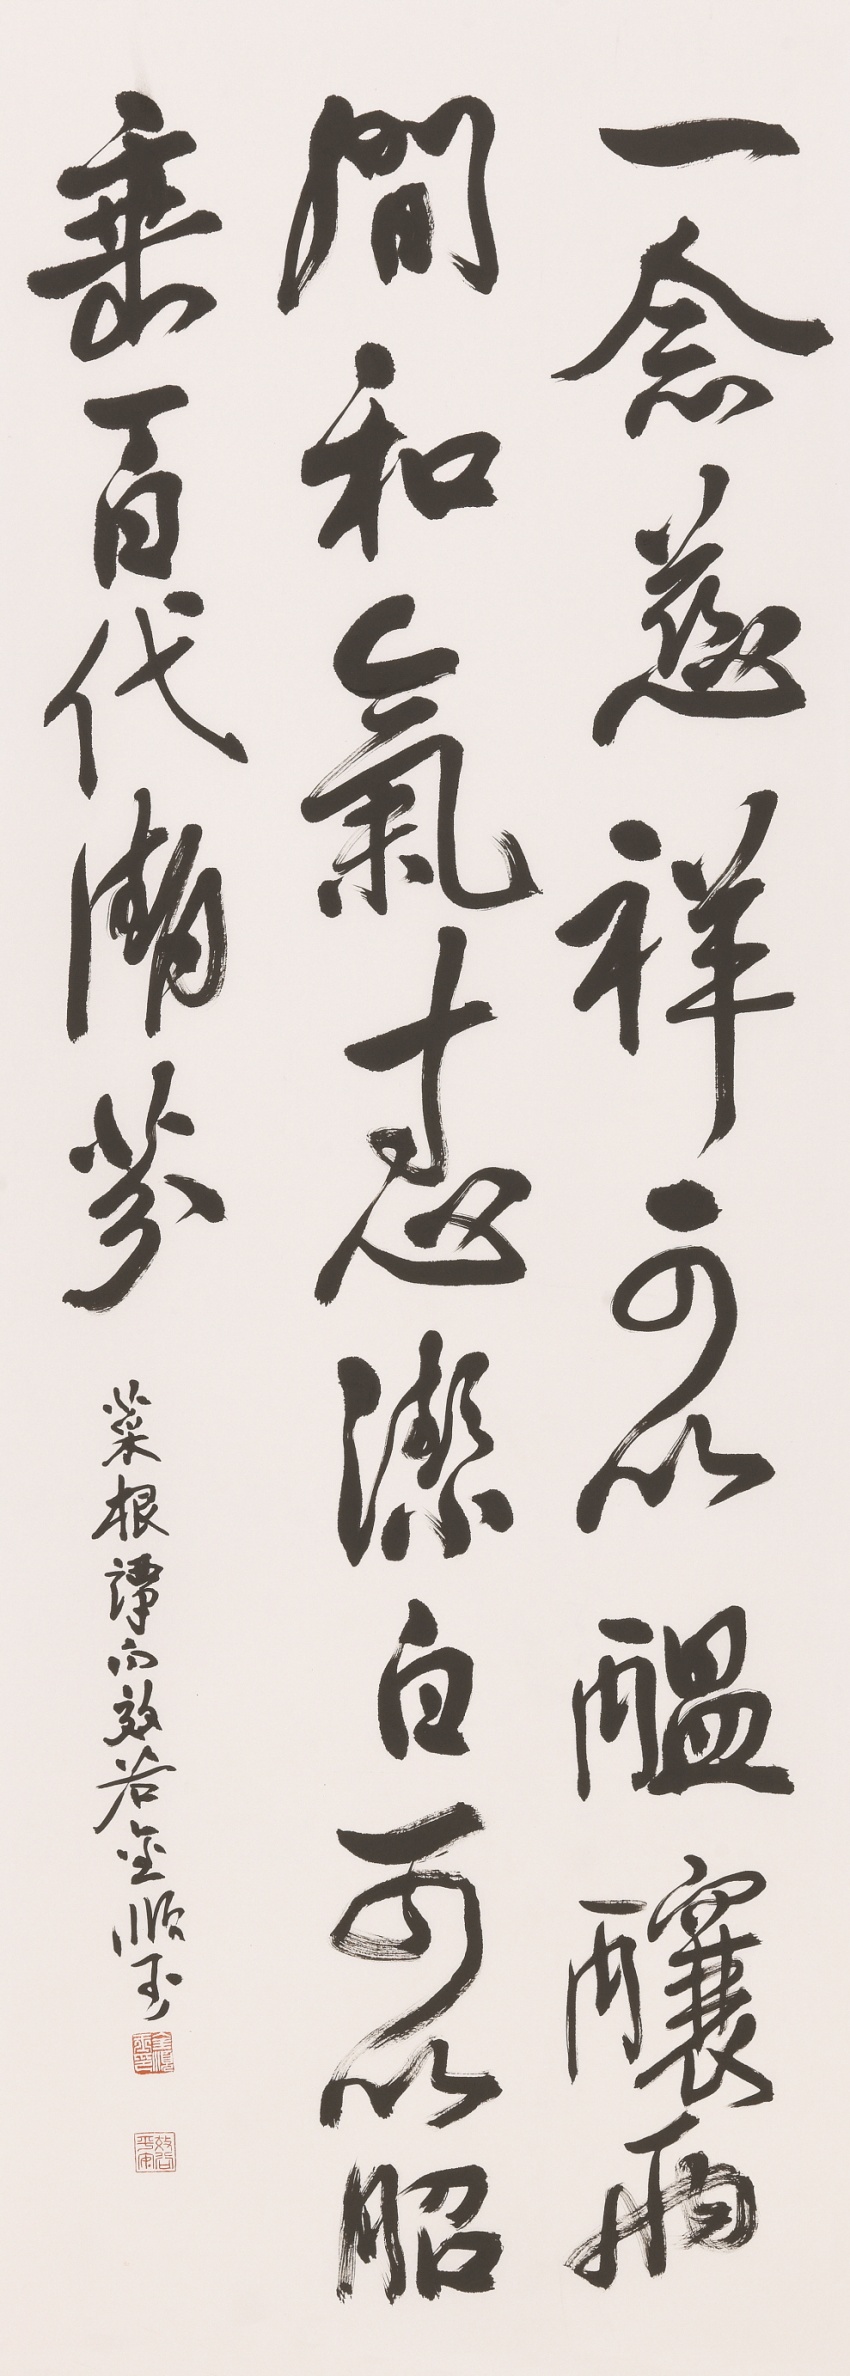 一念慈祥可以醞釀兩
間和氣寸心潔白可以昭
垂百代清芬
菜根譚句 效谷 金順玉